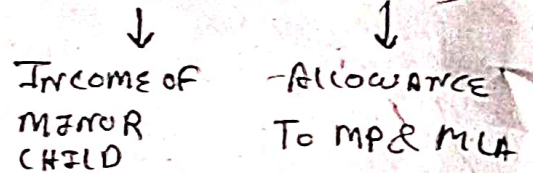 INCOME OF
MINOR
CHILD
-ALLOWANCE
TO MP & MLA